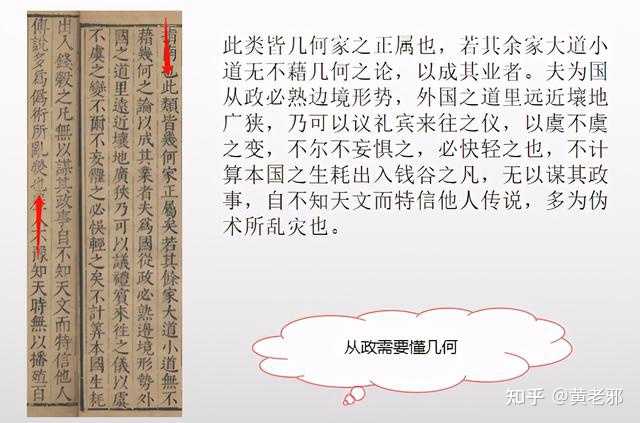 此類皆幾何家正屬矣若其餘家大道小道無不
藉幾何之論以成其業者夫為國從政必熟邊境形勢外
國之道里遠近壤地廣狹乃可以議禮賓來往之儀以虞
不虞之變不爾不妄懼之必怏輕之矣不計算本國生耗
出入錢穀之凡無以謀其政事自不知天文而特信他人
傳說多為偽術所亂熒也
不豫知天時無以播殖百
此类皆几何家之正属也，若其余家大道小
道无不藉几何之论，以成其业者。夫为国
从政必熟边境形势，外国之道里远近壤地
广狭，乃可以议礼宾来往之仪，以虞不虞
之变，不尔不妄惧之，必快轻之也，不计
算本国之生耗出入钱谷之凡，无以谋其政
事，自不知天文而特信他人传说，多为伪
术所乱灾也。
从政需要懂几何
知乎 @黄老邪